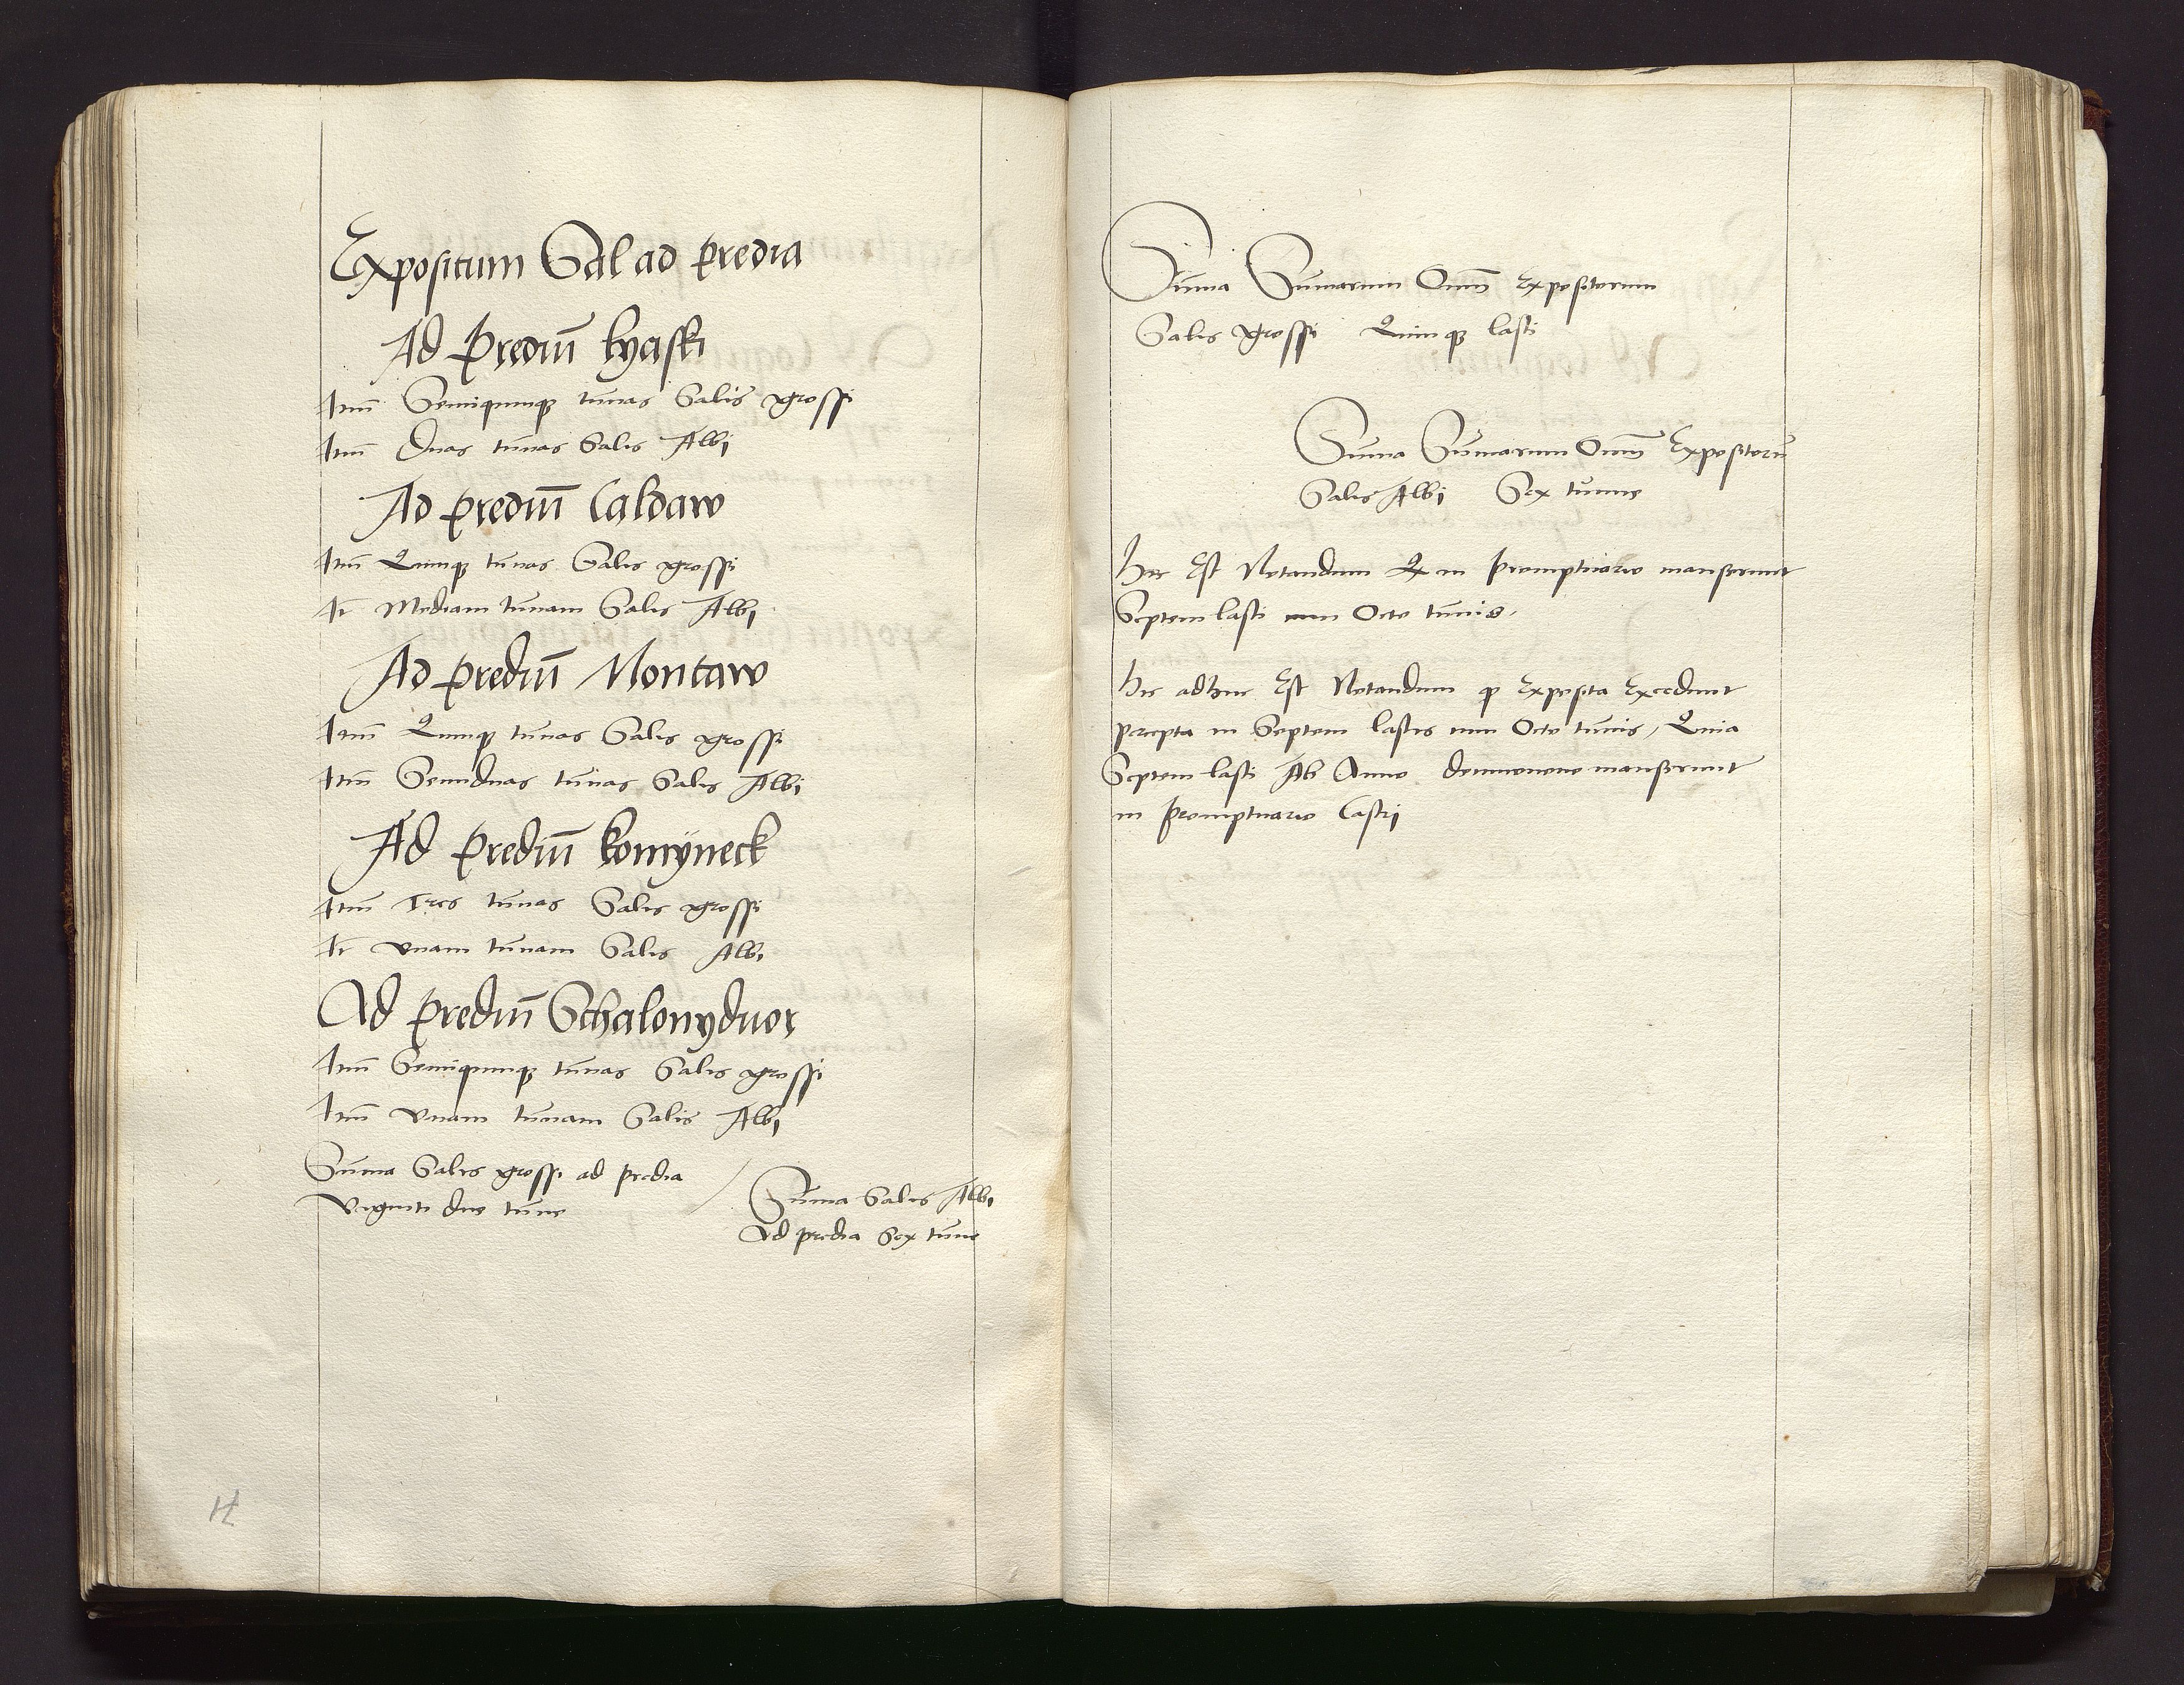 Expositum Sal ad predia
Ad prediū kyaski
Itm̄ Semiquinqȝ tūnas Salis grossi
Itm̄ Duas tūnas Salis Albi
Ad prediū Caldaw
Itm̄ Quinqȝ tūnas Salis grossi
It Mediam tūnam Salis Albi
Ad prediū Montaw
Itm̄ Quinqȝ tūnas Salis grossi
Itm̄ Semiduas tūnas Salis Albi
Ad prediū komÿneck
Itm̄ Tres tūnas Salis grossi
It vnam tūnam Salis Albi
Ad prediū Schalonyduor
Itm̄ Semiquinqȝ tūnas Salis grossi
Itm̄ vnam tūnam Salis Albi
Sūma Salis grossi ad predia
Viginti due tūne
Sūma Salis Albi
Ad predia Sex tūne
Sūma Sūmarum Oīm̄ Expositorum
Salis grossi Quinqȝ lasti
Sūma Sūmarum Oīm̄ Expositorū
Salis Albi Sex tūnne
Hic Est Notandum Q in promptuario manserunt
Septem lasti cum Octo tūnis.
Hic adhuc Est Notandum q Exposita Excedunt
precepta in Septem lastis cum Octo tūnis, Quia
Septem lasti Ab Anno manserunt
in promptuario Castri